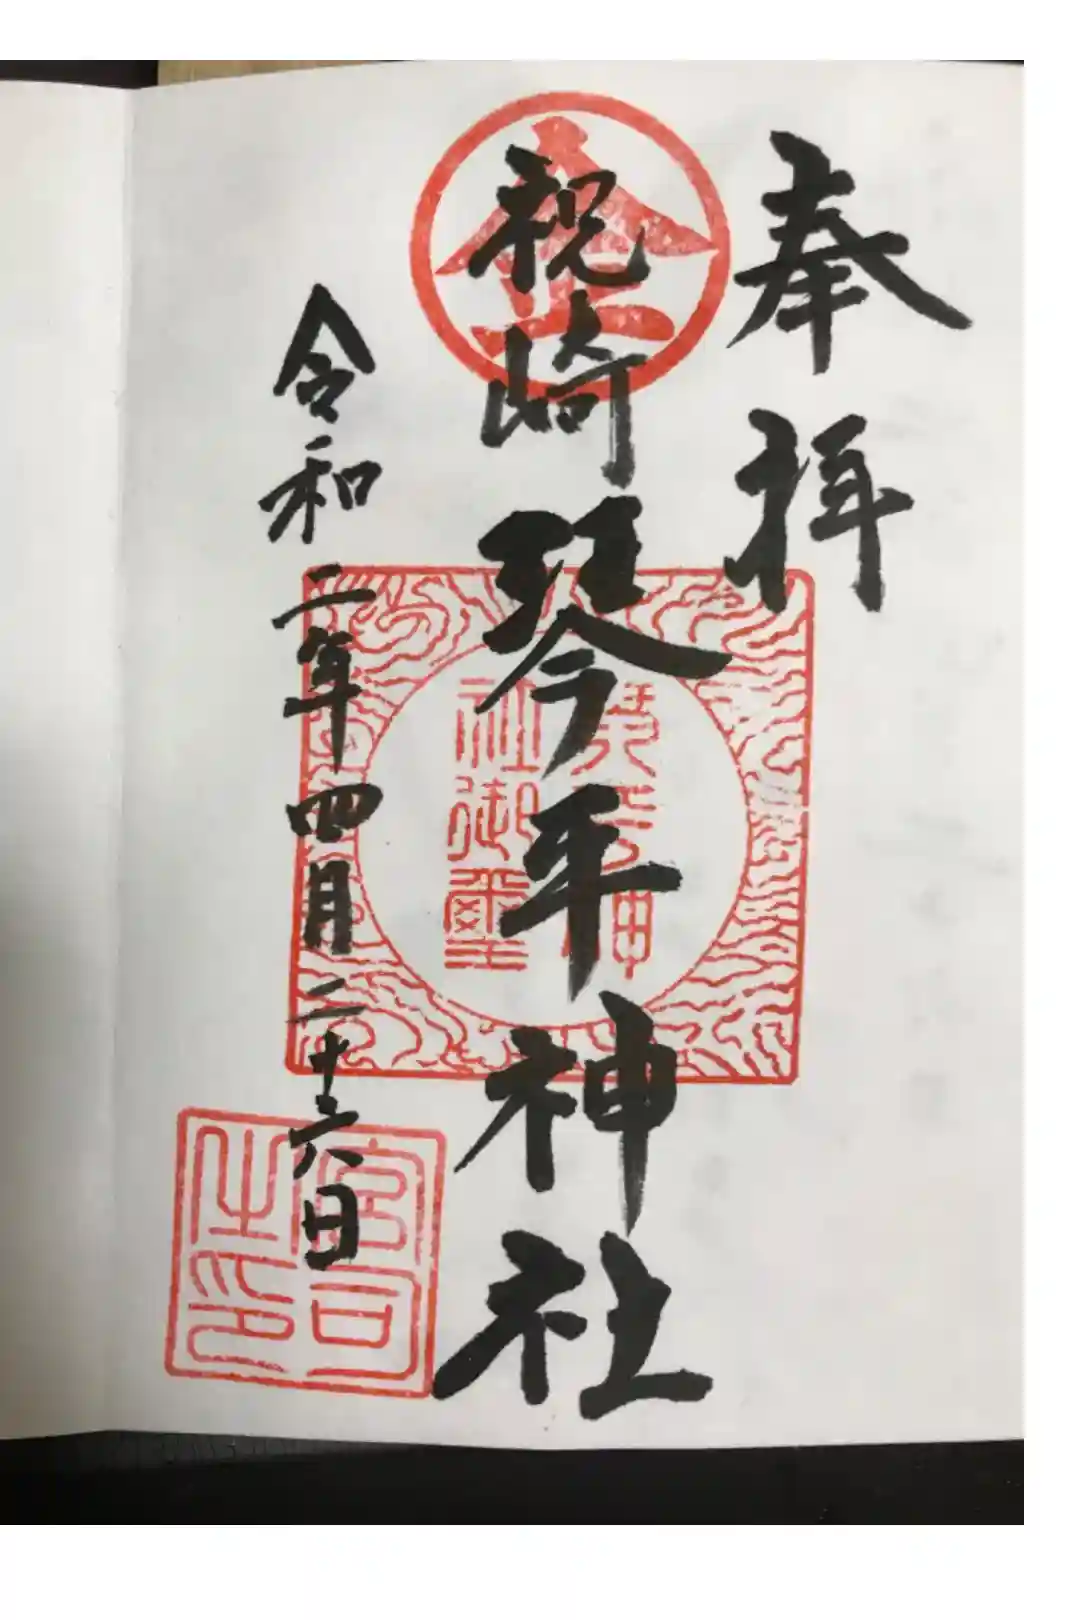 奉拝
金
祝崎琴平神社
社御璽
令和二年四月二十六日
宮司
之印